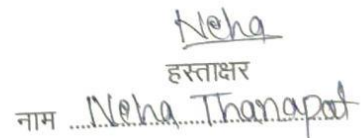 Neha
हस्ताक्षर
नाम ....Neha Thanapat